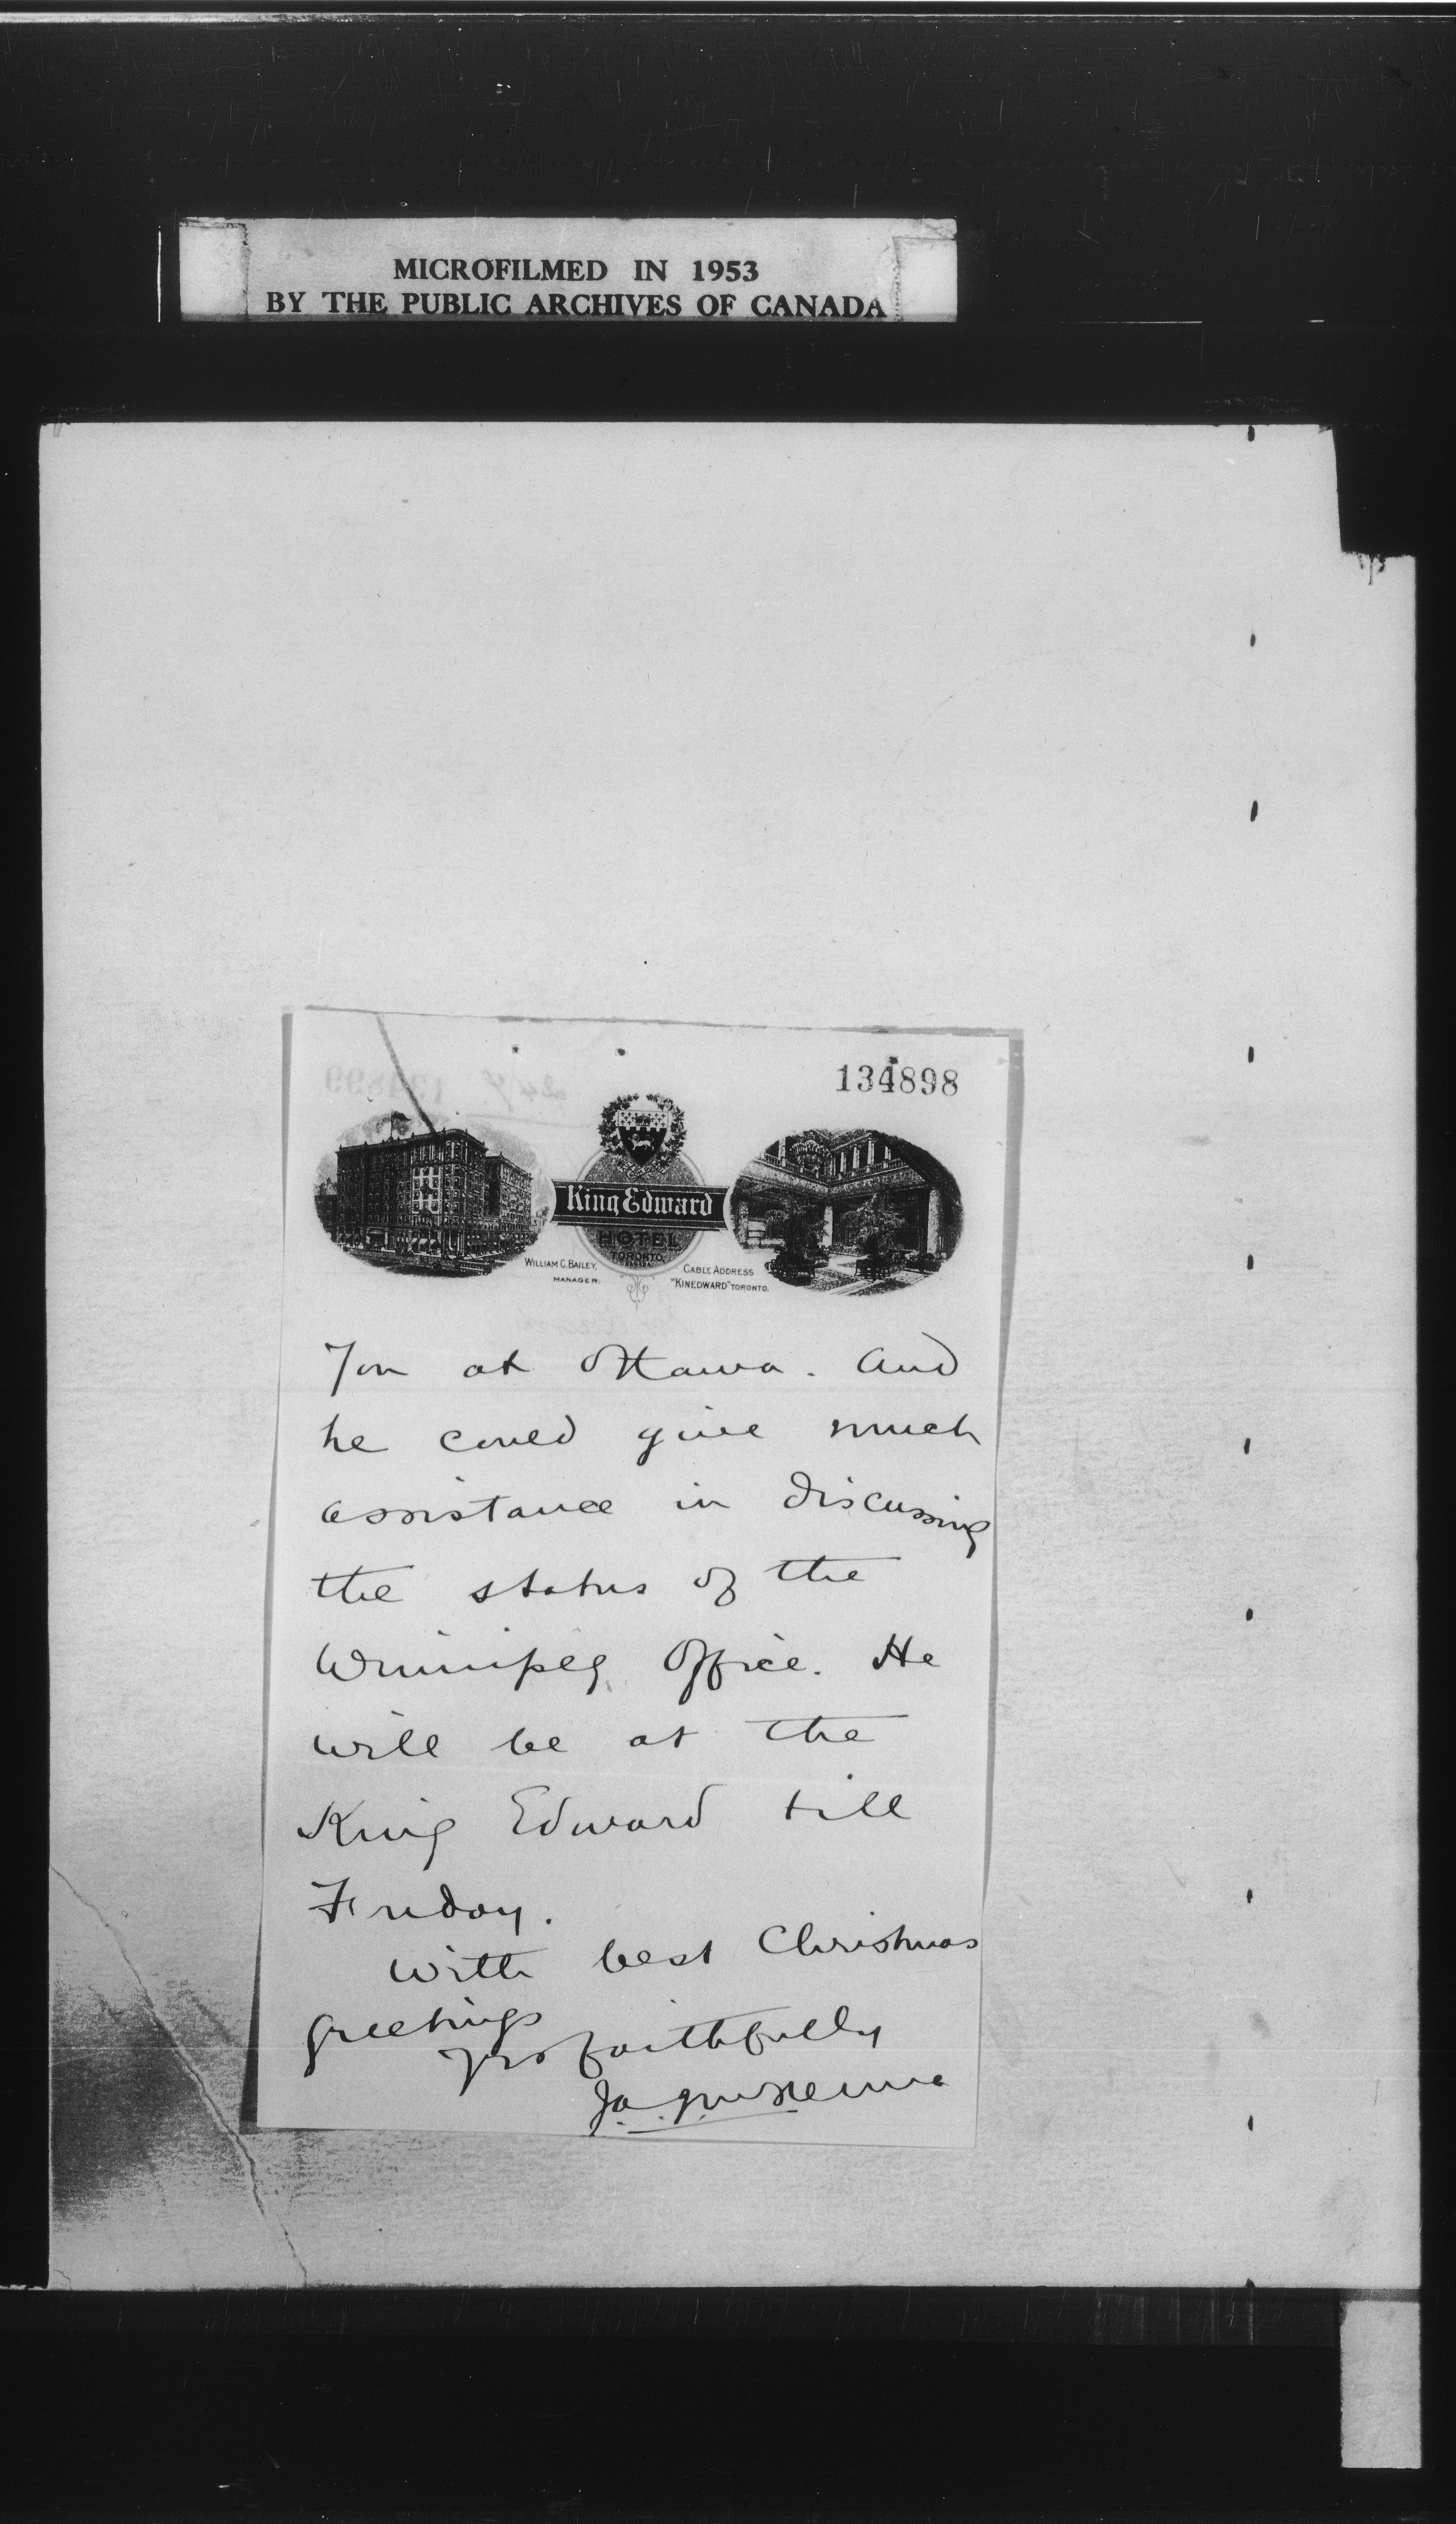 MICROFILMED IN 1953
BY THE PUBLIC ARCHIVES OF CANADA
134898
King Edward
HOTEL
TORONTO,
CANADA.
WILLIAM C. BAILEY,
MANAGER.
CABLE ADDRESS
"KINEDWARD" TORONTO.
You at Ottawa. And
he could give much
assistance in discussing
the status of the
Winnipeg Office. He
will be at the
King Edward till
Friday.
With best Christmas
greetings
Yrs faithfully